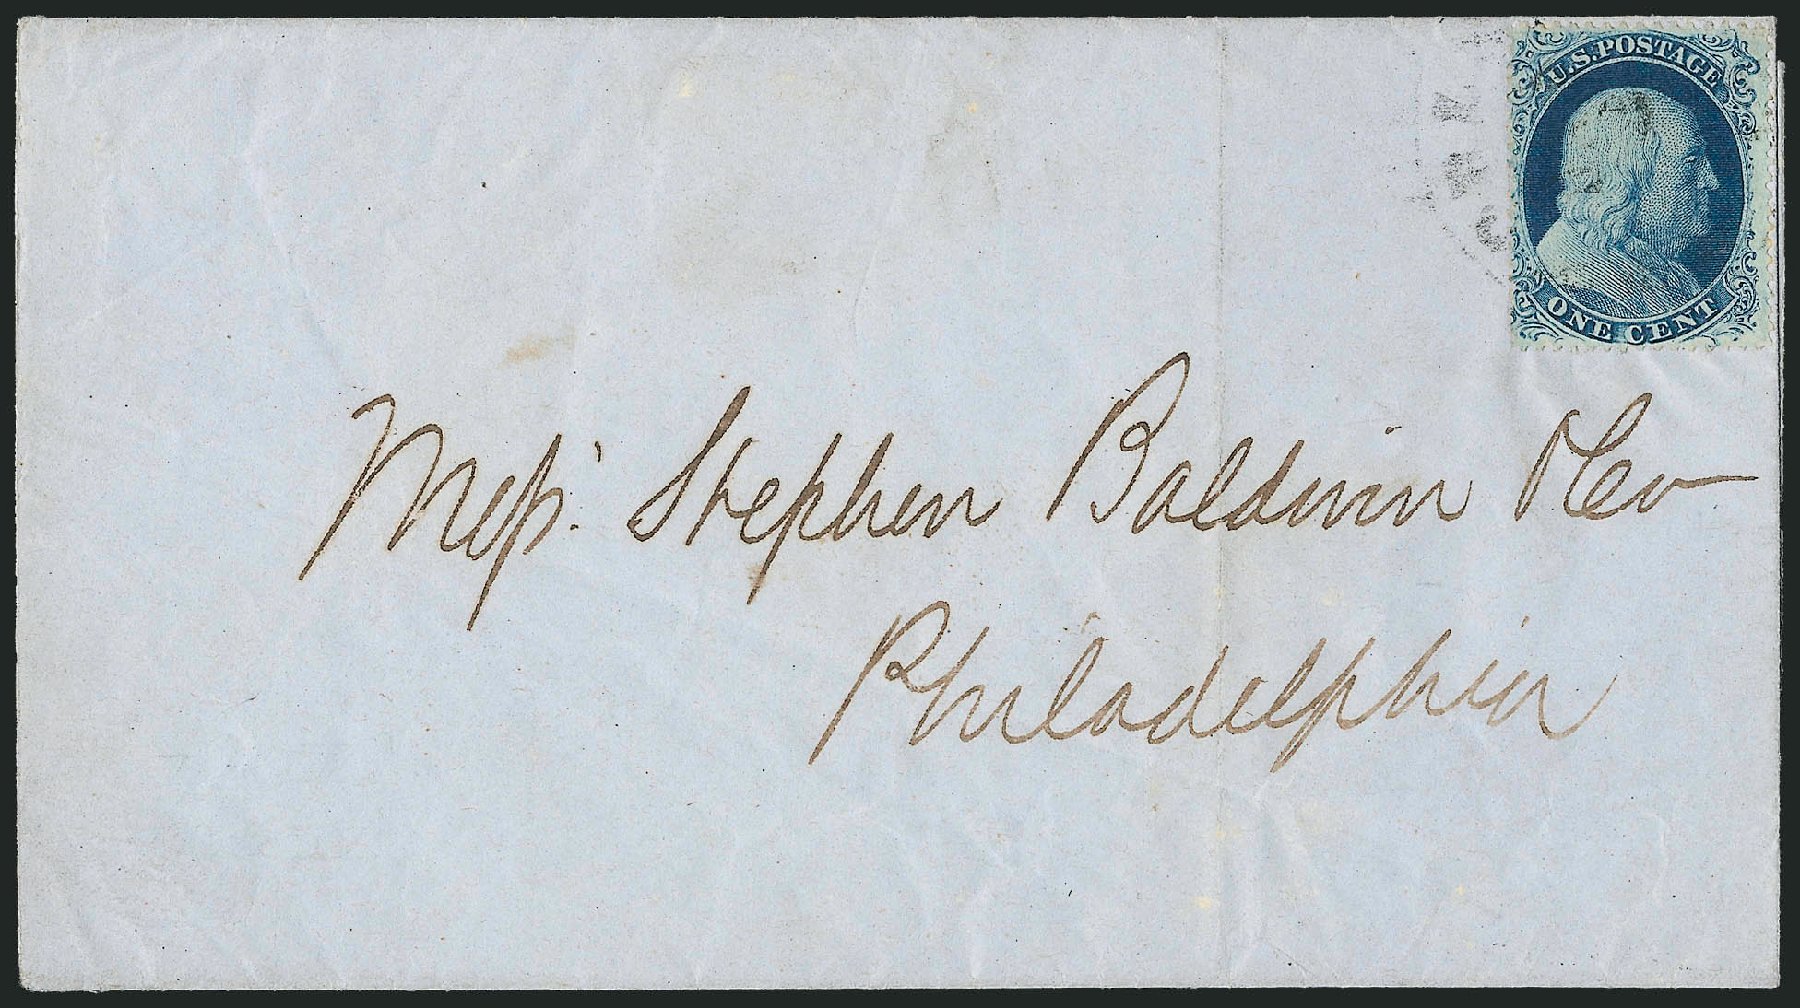 U.S. POSTAGE
ONE CENT
Mess: Stephen Baldwin & Co
Philadelphia